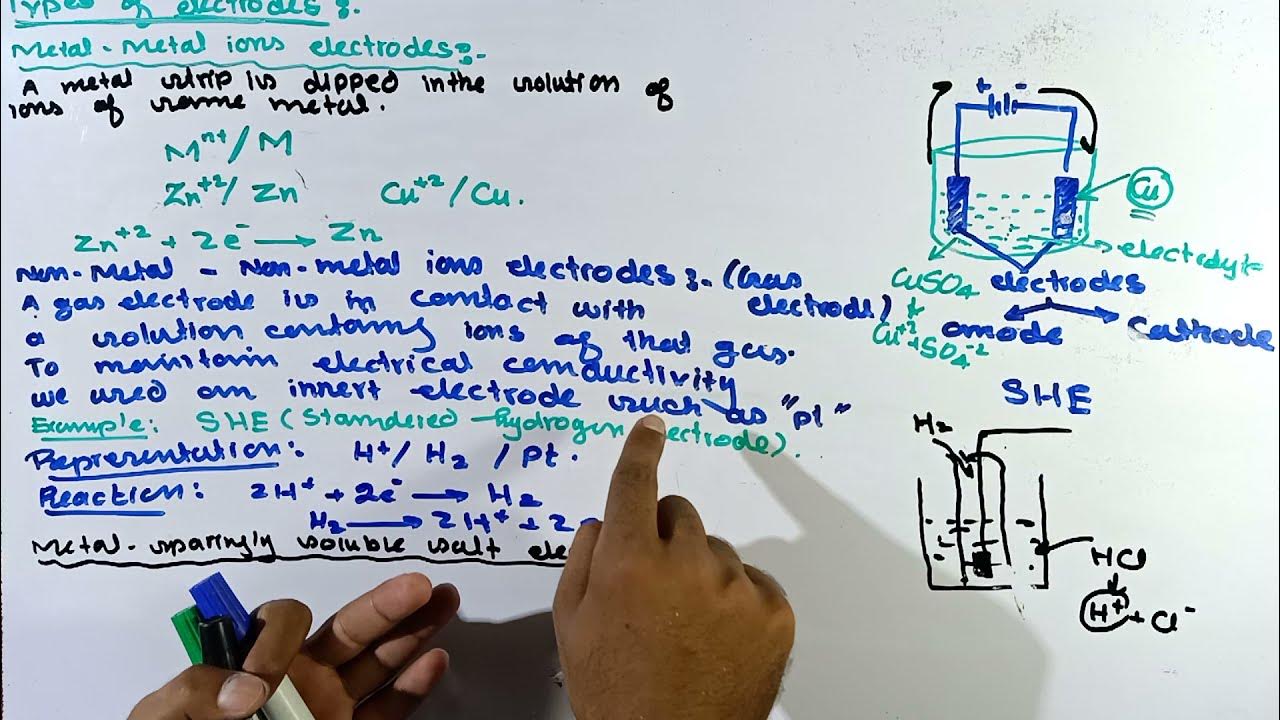 Types of electrodes:-
Metal-Metal ions electrodes:-
A metal strip is dipped in the solution of
ions of same metal.
Mⁿ⁺/M
Zn⁺²/Zn Cu⁺²/Cu.
Zn⁺² + 2e⁻ → Zn
Non-Metal - Non-metal ions electrodes:- (Gas
electrode)
A gas electrode is in contact with
a solution containing ions of that gas.
To maintain electrical conductivity
we used an innert electrode such as "pt"
Example: SHE (Standered hydrogen electrode).
Representation: H⁺/H₂/Pt.
Reaction: 2H⁺ + 2e⁻ → H₂
H₂ → 2H⁺ + 2
Metal-sparingly soluble salt ele
+ -
Cu
electrolyte
CuSO₄
electrodes
Cu⁺² + SO₄⁻²
anode
Cathode
SHE
H₂
HCl
H⁺ + Cl⁻